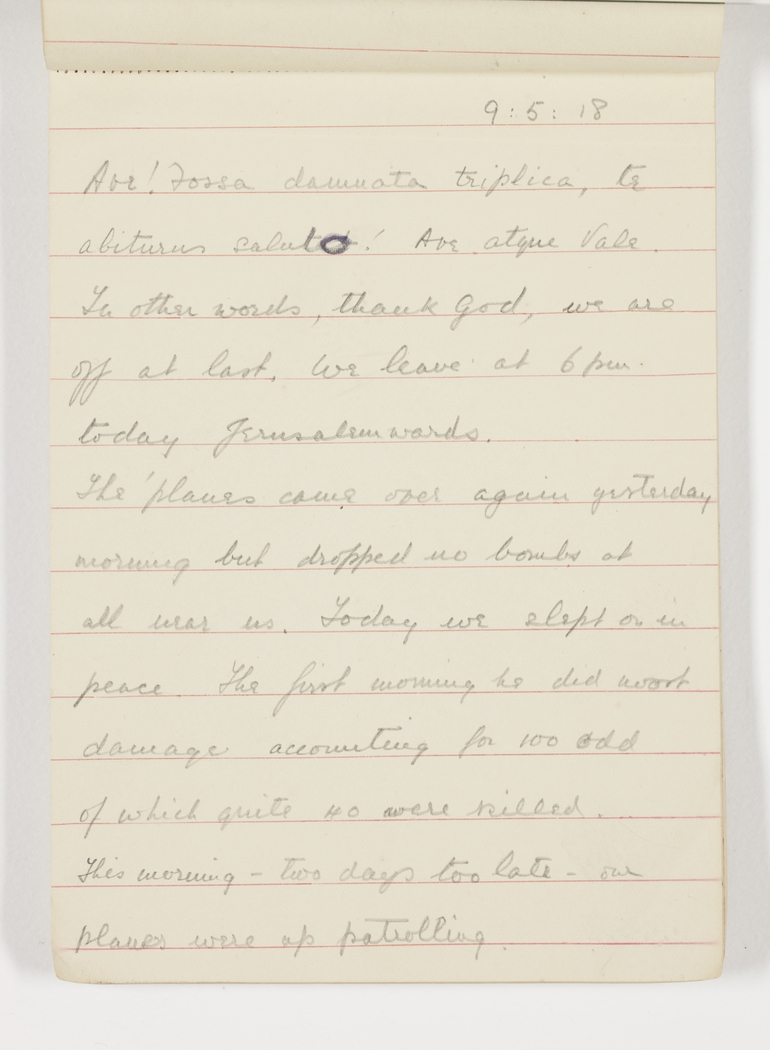 9:5:18
Ave! Fossa damnata triplica, te
abiturus saluto! Ave atque Vale.
In other words, thank God, we are
off at last. We leave at 6 pm.
today Jerusalemwards.
The 'planes came over again yesterday
morning but dropped no bombs at
all near us. Today we slept on in
peace. The first morning he did most
damage accounting for 100 odd
of which quite 40 were killed.
This morning - two days too late - our
planes were up patrolling.